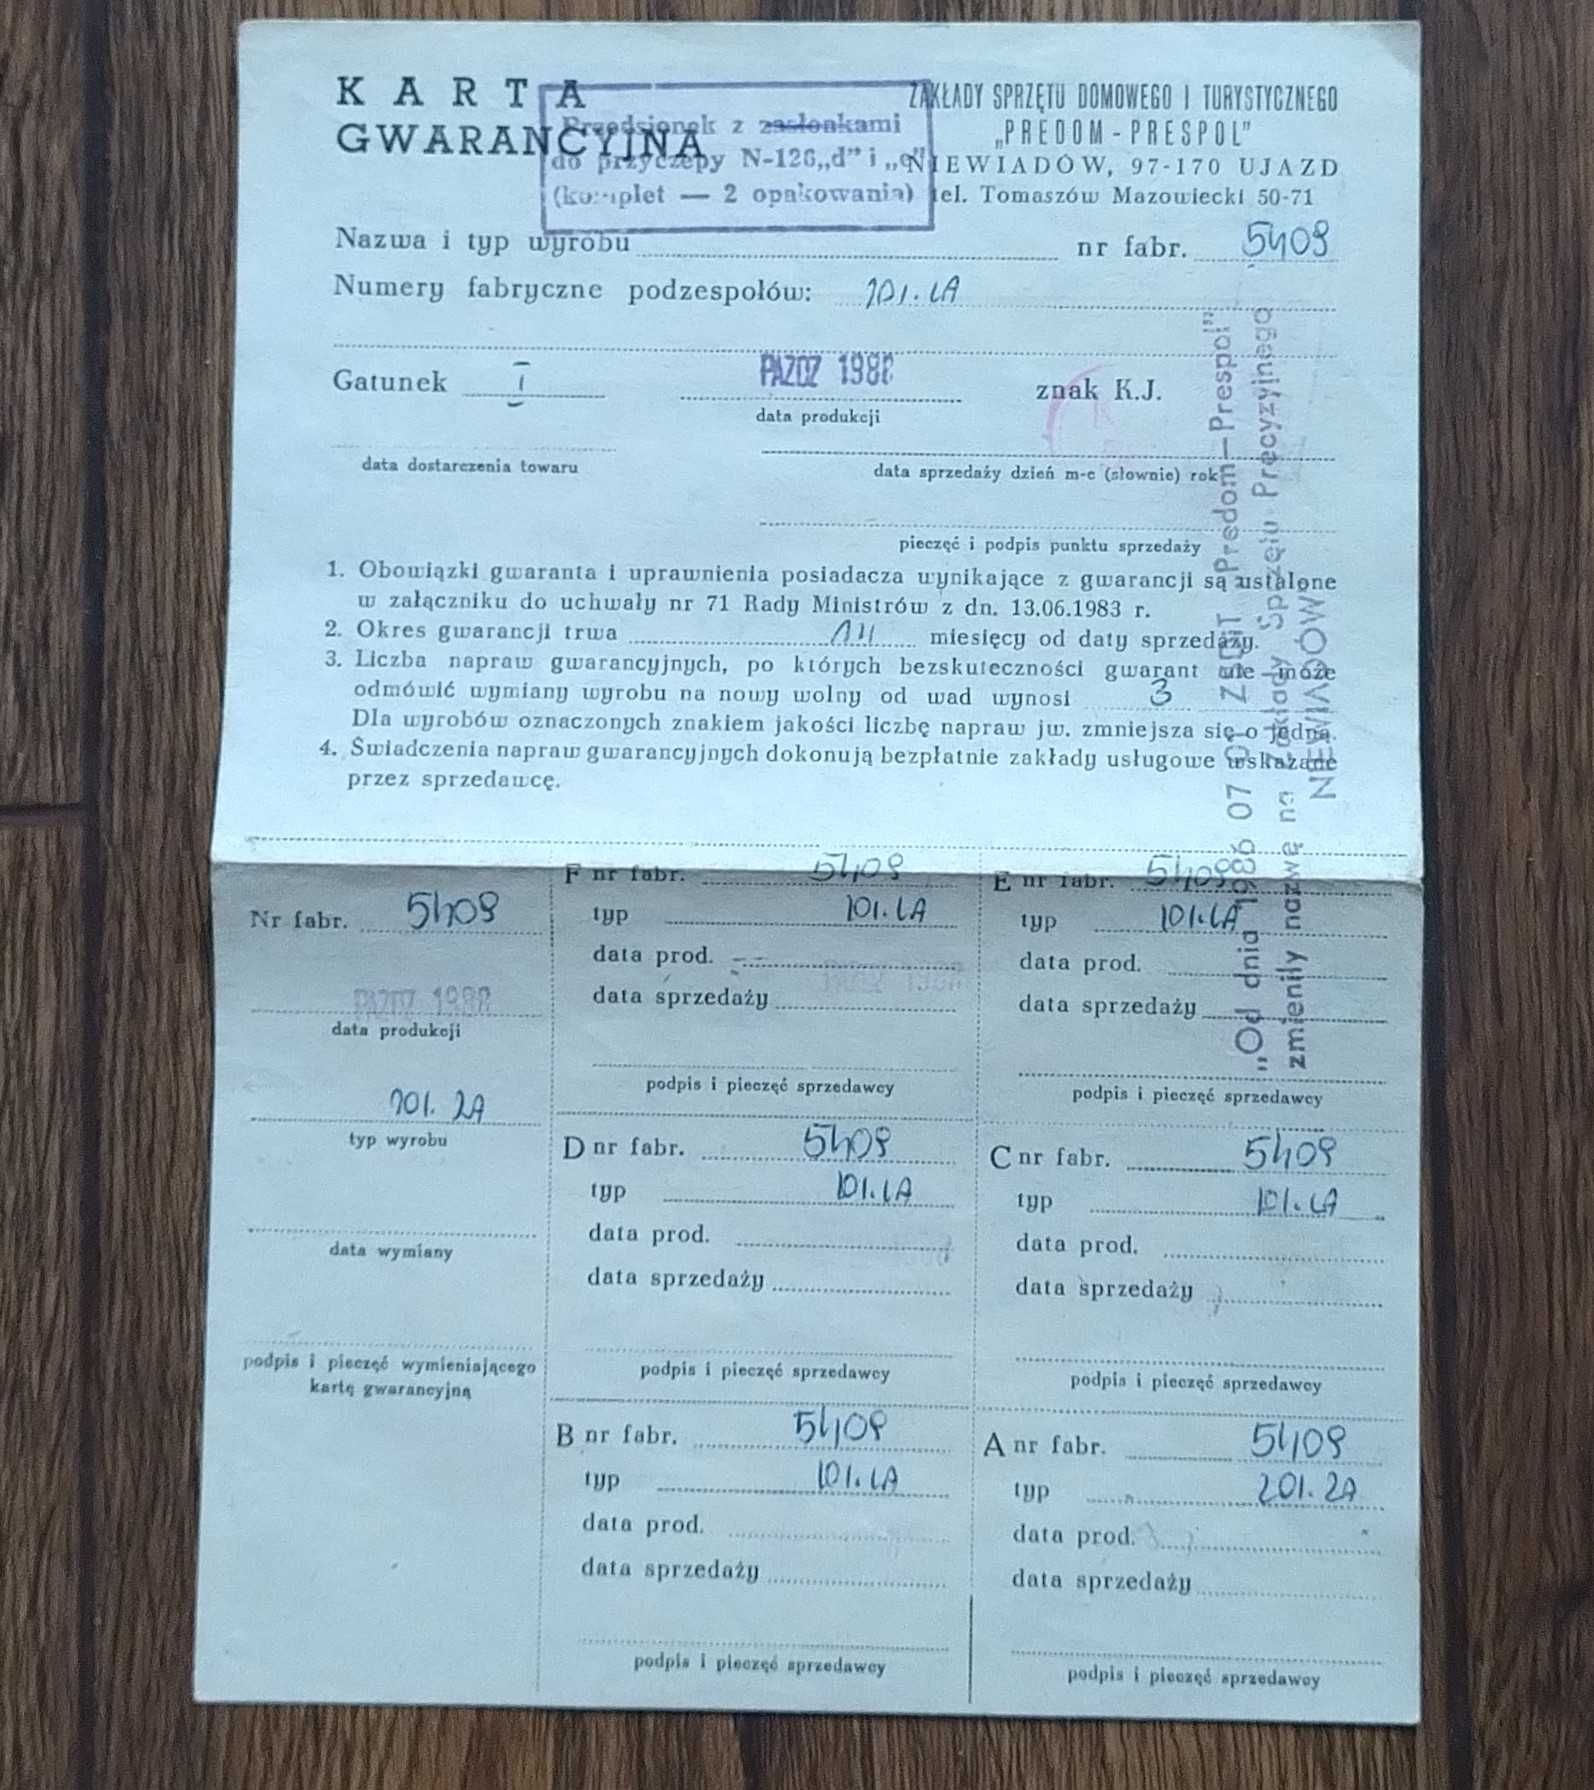 KARTA
GWARANCYJNA
Przedsionek z zasłonkami
do przyczepy N-126„d” i „e”
(komplet — 2 opakowania)
ZAKŁADY SPRZĘTU DOMOWEGO I TURYSTYCZNEGO
„PREDOM-PRESPOL”
NIEWIADÓW, 97-170 UJAZD
tel. Tomaszów Mazowiecki 50-71
Nazwa i typ wyrobu nr fabr. 5409
Numery fabryczne podzespołów: 101.1A
Gatunek I PAZDZ 1988 znak K.J.
data produkcji
data dostarczenia towaru
data sprzedaży dzień m-c (słownie) rok
pieczęć i podpis punktu sprzedaży
1. Obowiązki gwaranta i uprawnienia posiadacza wynikające z gwarancji są ustalone
w załączniku do uchwały nr 71 Rady Ministrów z dn. 13.06.1983 r.
2. Okres gwarancji trwa miesięcy od daty sprzedaży.
3. Liczba napraw gwarancyjnych, po których bezskuteczności gwarant nie może
odmówić wymiany wyrobu na nowy wolny od wad wynosi 3
Dla wyrobów oznaczonych znakiem jakości liczbę napraw jw. zmniejsza się o jedną.
4. Świadczenia napraw gwarancyjnych dokonują bezpłatnie zakłady usługowe wskazane
przez sprzedawcę.
„Od dnia 1986 07 01 ZSDiT Predom—Prespol”
zmieniły nazwę na Zakłady Sprzętu Precyzyjnego
NIEWIADÓW
Nr fabr. 5409
PAZDZ 1988
data produkcji
101.2A
typ wyrobu
data wymiany
podpis i pieczęć wymieniającego
kartę gwarancyjną
F nr fabr. 5409
typ 101.1A
data prod.
data sprzedaży
podpis i pieczęć sprzedawcy
E nr fabr. 5409
typ 101.1A
data prod.
data sprzedaży
podpis i pieczęć sprzedawcy
D nr fabr. 5409
typ 101.1A
data prod.
data sprzedaży
podpis i pieczęć sprzedawcy
C nr fabr. 5409
typ 101.1A
data prod.
data sprzedaży
podpis i pieczęć sprzedawcy
B nr fabr. 5409
typ 101.1A
data prod.
data sprzedaży
podpis i pieczęć sprzedawcy
A nr fabr. 5409
typ 201.2A
data prod.
data sprzedaży
podpis i pieczęć sprzedawcy